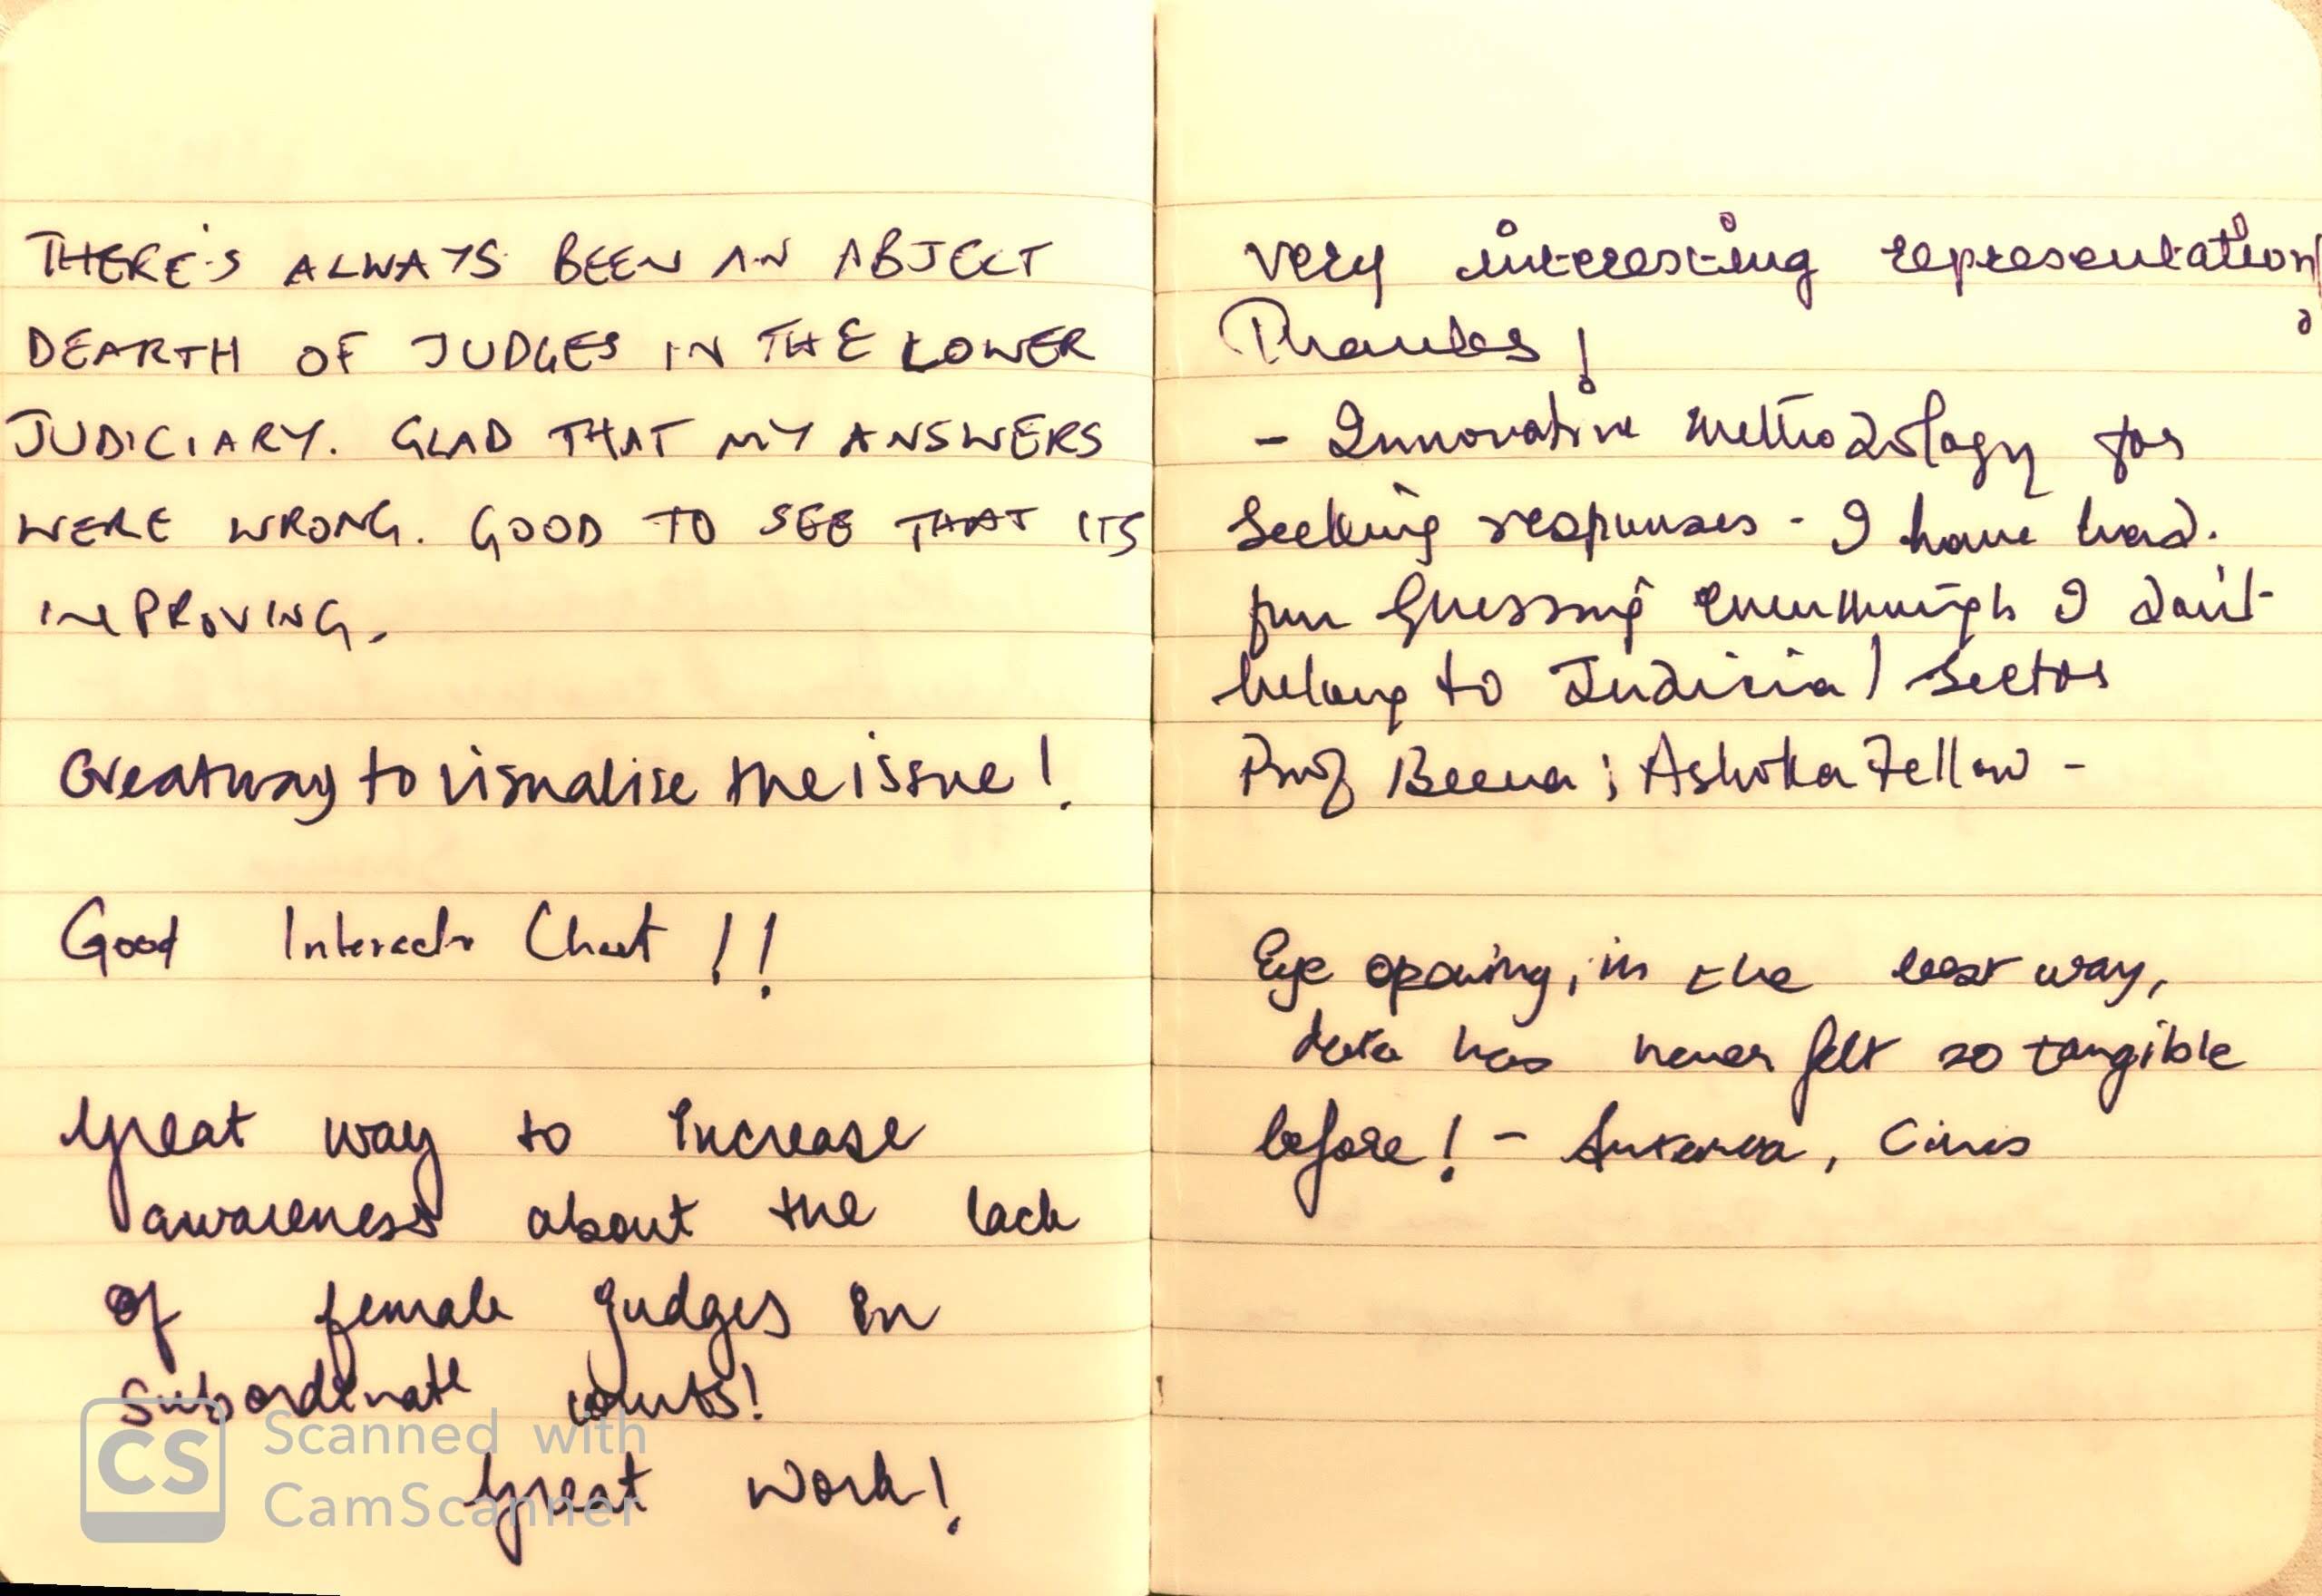 THERE'S ALWAYS BEEN AN ABJECT
DEARTH OF JUDGES IN THE LOWER
JUDICIARY. GLAD THAT MY ANSWERS
WERE WRONG. GOOD TO SEE THAT ITS
IMPROVING.
Great way to visualise the issue!
Good Chart !!
Great way to increase
awareness about the lack
of female judges in
subordinate courts!
Great work!
Scanned with
CS
CamScanner
Very interesting representation
Thanks!
- Innovative Methodology for
Seeking responses - I have had.
fun Guessing eventhough I don't
belong to Judicial Sector
Prof Beena ; Ashoka Fellow -
Eye opening, in the best way,
data has never felt so tangible
before! -